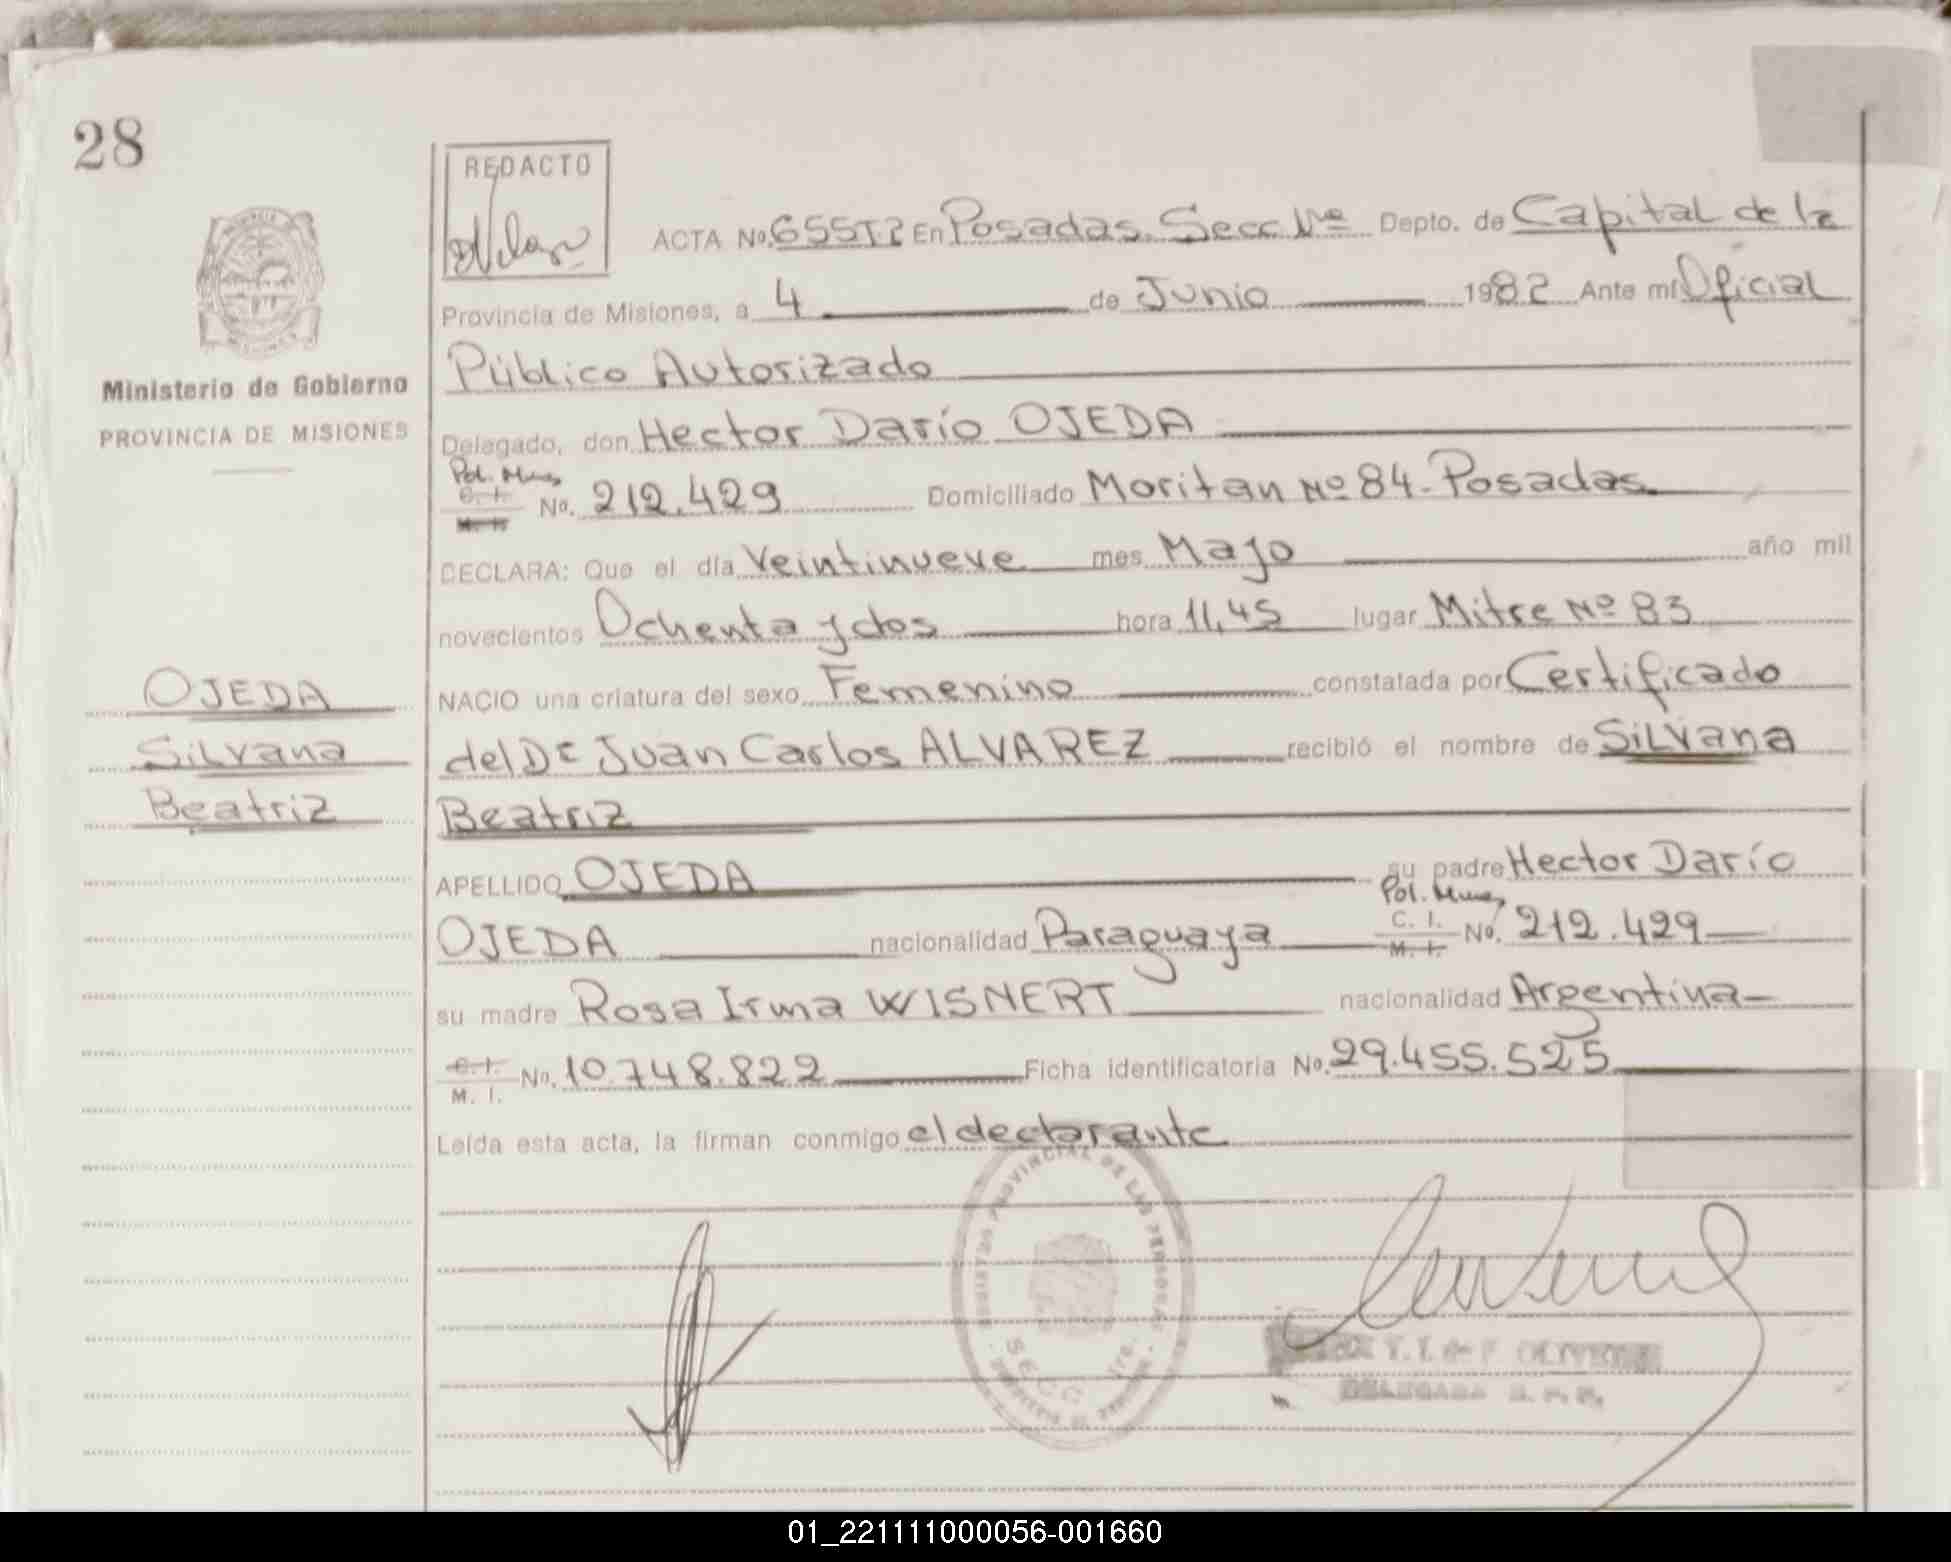 28
REDACTO
ACTA No. 655T2 En Posadas. Secc 1ra Depto. de Capital de la
Provincia de Misiones, a 4 de Junio 1982 Ante mí Oficial
Público Autorizado
Ministerio de Gobierno
PROVINCIA DE MISIONES
Delegado, don Hector Darío OJEDA
Pol. Mnes
C. I.
M. I.
No. 212.429 Domiciliado Moritan Nº 84 - Posadas.
DECLARA: Que el día Veintinueve mes Mayo año mil
novecientos Ochenta y dos hora 11,45 lugar Mitre Nº 83
OJEDA
Silvana
Beatriz
NACIO una criatura del sexo Femenino constatada por Certificado
del Dr Juan Carlos ALVAREZ recibió el nombre de Silvana
Beatriz
APELLIDO OJEDA su padre Hector Darío
Pol. Mnes
OJEDA nacionalidad Paraguaya C. I. M. I. No. 212.429
su madre Rosa Irma WISNERT nacionalidad Argentina
C. I.
M. I.
No. 10.748.822 Ficha identificatoria No. 29.455.525
Leída esta acta, la firman conmigo el declarante
REGISTRO PROVINCIAL DE LAS PERSONAS
SECC. 1ra.
DELEGADA R. P. P.
01_221111000056-001660